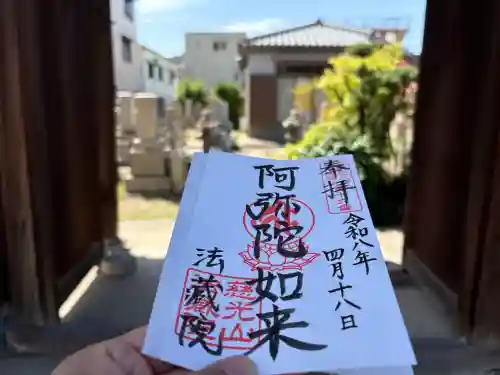 奉拝
令和八年四月十八日
阿弥陀如来
法蔵院